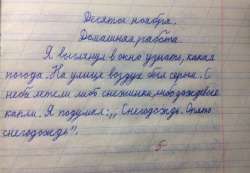 Десятое ноября.
Домашняя работа
Я выглянул в окно узнать, какая
погода. На улице воздух был серый. С
неба летели то ли снежинки, то ли дождевые
капли. Я подумал: ,,Снегодождь. Опять
снегодождь".
5